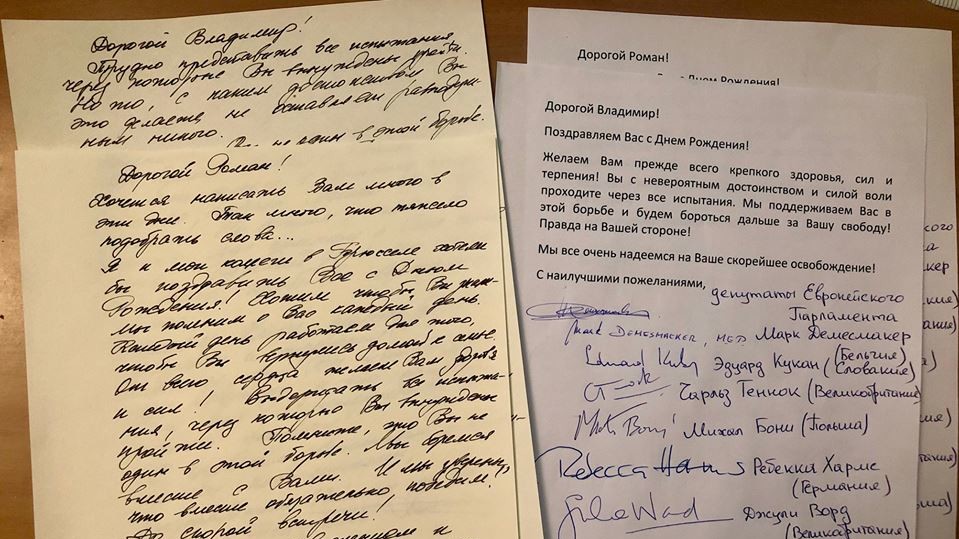 Дорогой Владимир!
Трудно представить все испытания
через которые Вы вынуждены пройти.
Но то, с каким достоинством Вы
это делаете не оставляет равнодуш-
ным никого.
не один в этой борьбе.
Дорогой Роман!
Хочется написать Вам много в
эти дни. Так много, что тяжело
подобрать слова...
Я и мои коллеги в Брюсселе хотели
бы поздравить Вас с Днем
Рождения! Хотим чтобы Вы знали
мы помним о Вас каждый день.
Каждый день работаем для того,
чтобы Вы вернулись домой к семье.
От всего сердца желаем Вам
и сил! Выдержать все испыта-
ния, через которые Вы вынуждены
пройти. Помните, что Вы не
один в этой борьбе. Мы боремся
вместе с Вами. И мы уверены,
что вместе обязательно, победим!
До скорой встречи!
Дорогой Роман!
Днем Рождения!
Дорогой Владимир!
Поздравляем Вас с Днем Рождения!
Желаем Вам прежде всего крепкого здоровья, сил и
терпения! Вы с невероятным достоинством и силой воли
проходите через все испытания. Мы поддерживаем Вас в
этой борьбе и будем бороться дальше за Вашу свободу!
Правда на Вашей стороне!
Мы все очень надеемся на Ваше скорейшее освобождение!
С наилучшими пожеланиями,
депутаты Европейского
Парламента
Mark DEMESMAEKER, MEP Марк Демесмакер
(Бельгия)
Eduard Kukan Эдуард Кукан (Словакия)
Чарльз Теннок (Великобритания)
Michał Boni Михал Бони (Польша)
Rebecca Harms Ребекка Хармс
(Германия)
Julie Ward Джули Ворд
(Великобритания)